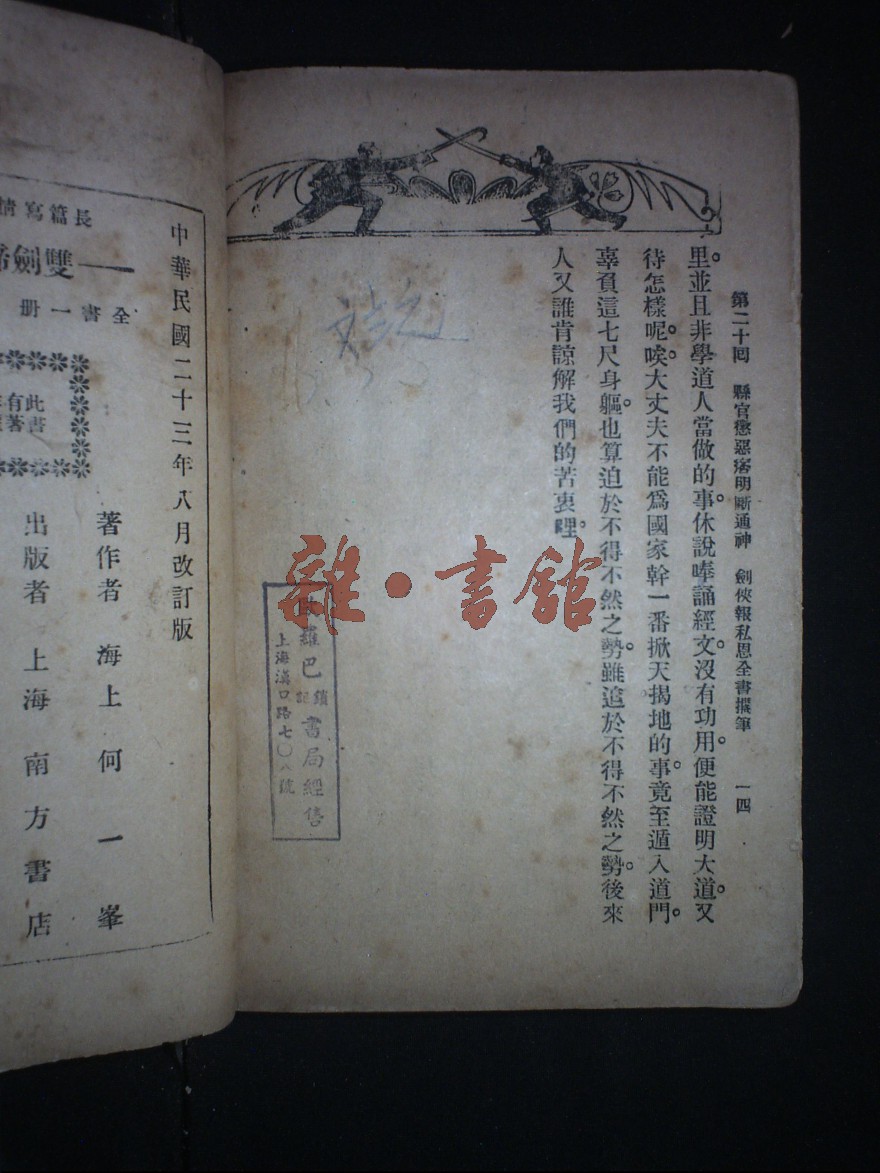 第二十回　縣官懲惡瘩明斷通神　劍俠報私恩全書撰筆　一四
里。並且非學道人當做的事。休說唪誦經文。沒有功用。便能證明大道。又
待怎樣呢。唉。大丈夫不能爲國家幹一番掀天揭地的事。竟至遁入道門。
辜負這七尺身軀。也算迫於不得不然之勢。雖逭於不得不然之勢。後來
人又誰肯諒解我們的苦衷哩。
雜·書館
歐羅巴書局經售
上海漢口路七〇八號
長篇寫情
雙劍
全書一册
此書
有著
中華民國二十三年八月改訂版
著作者　海上　何一峯
出版者　上海　南方書店